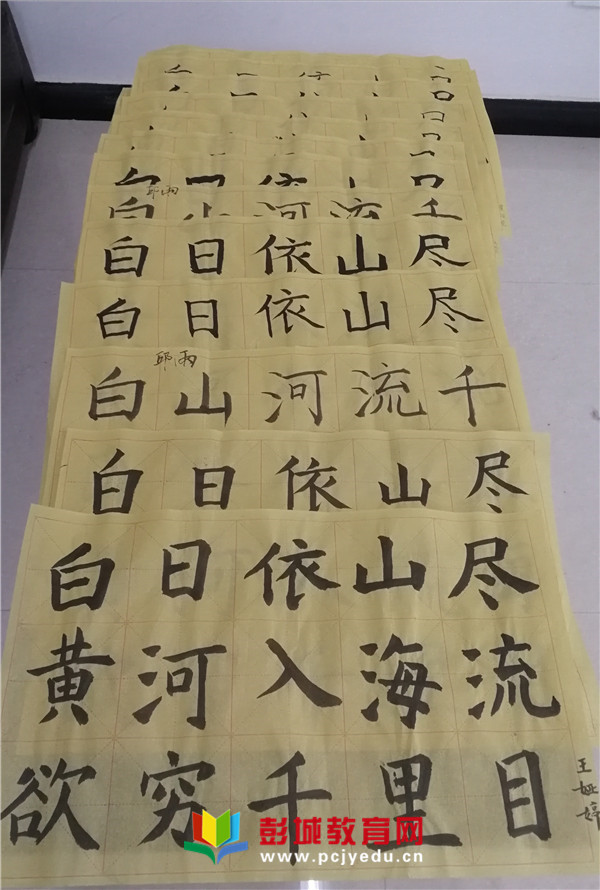 邱雨
白山河流千
白日依山尽
白日依山尽
邱雨
白山河流千
白日依山尽
白日依山尽
黄河入海流
欲穷千里目
王
彭城教育网
www.pcjyedu.cn